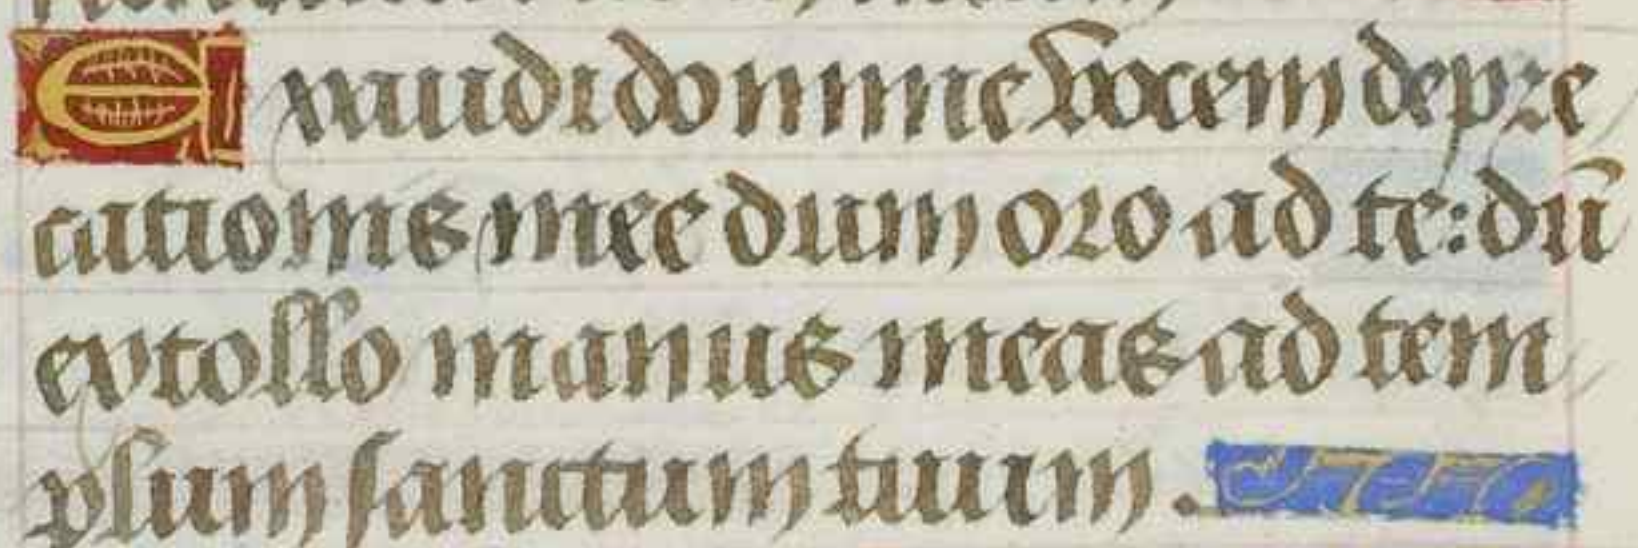 Exaudi domine vocem depre
cationis mee dum oro ad te: dū
extollo manus meas ad tem
plum sanctum tuum.